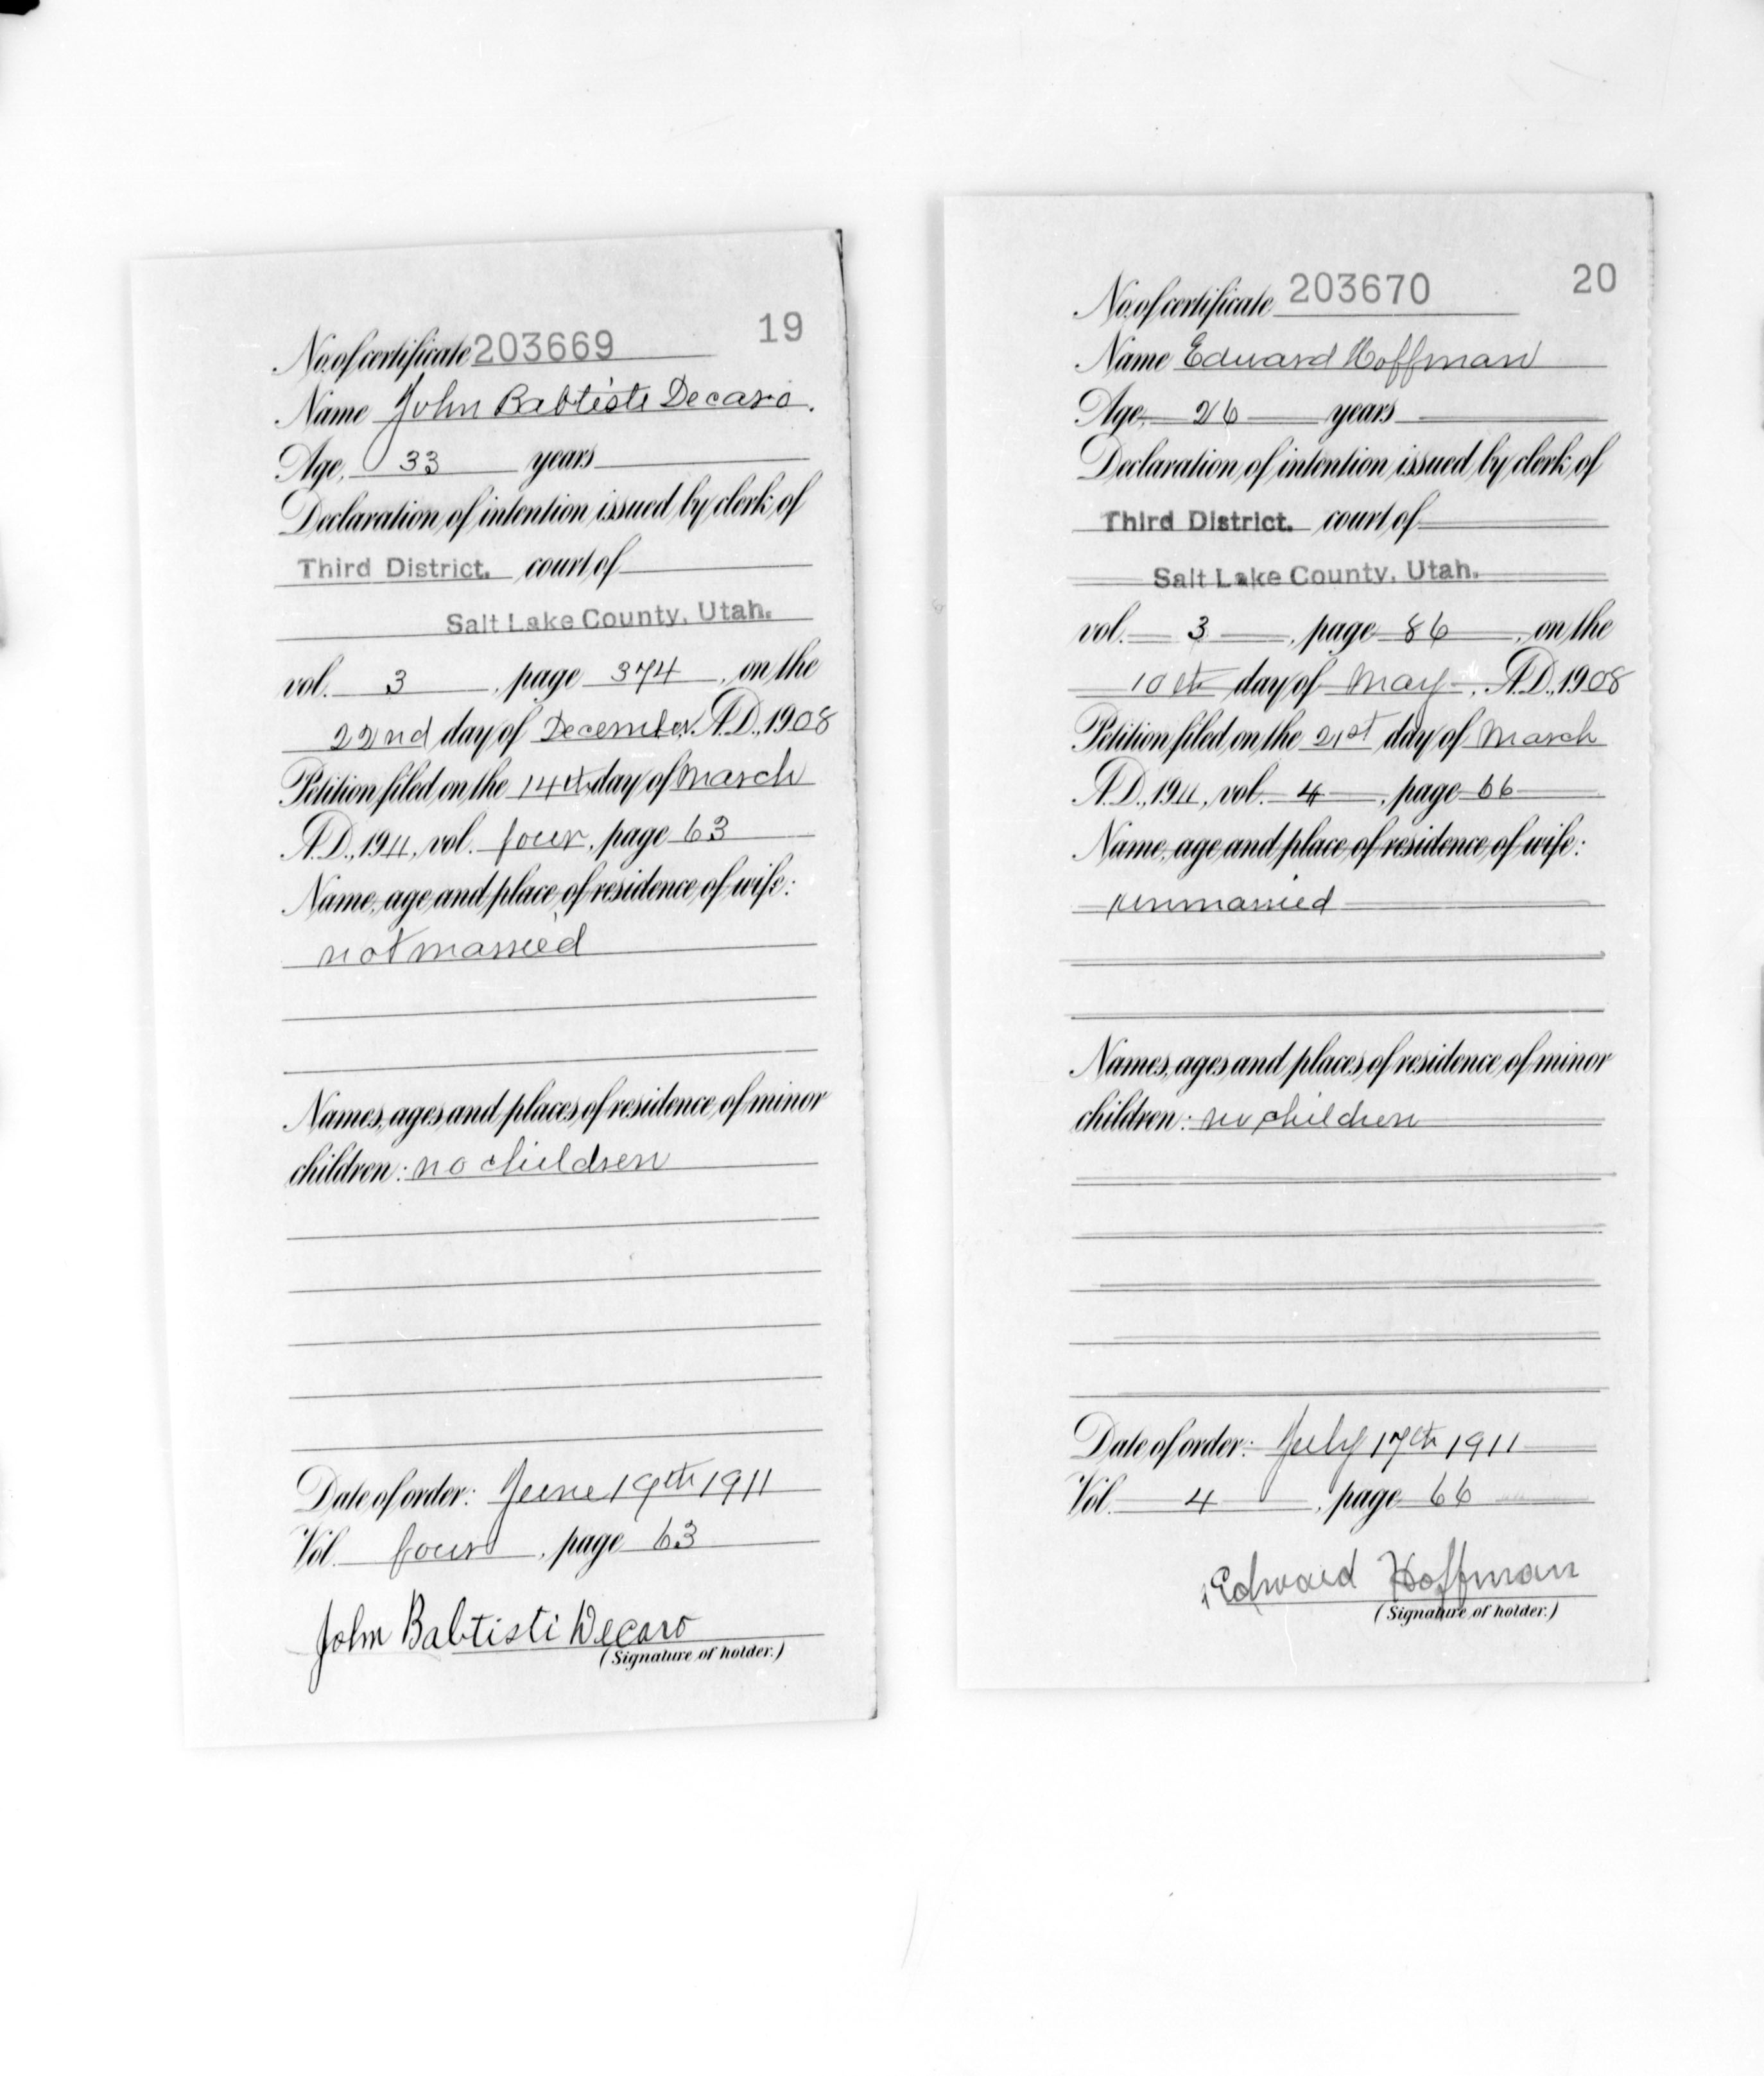 19
No. of certificate 203669
Name John Babtiste Decaro.
Age, 33 years
Declaration of intention issued by clerk of
Third District. court of
Salt Lake County, Utah.
vol. 3, page 374, on the
22nd day of December A.D., 1908
Petition filed on the 14th day of March
A.D., 1911, vol. four, page 63
Name, age and place of residence of wife:
not married
Names, ages and places of residence of minor
children: no children
Date of order: June 19th 1911
Vol. four, page 63
John Babtisti Decaro
(Signature of holder.)
20
No. of certificate 203670
Name Edward Hoffman
Age, 26 years
Declaration of intention issued by clerk of
Third District. court of
Salt Lake County, Utah.
vol. 3, page 86, on the
10th day of May, A.D., 1908
Petition filed on the 21st day of March
A.D., 1911, vol. 4, page 66
Name, age and place of residence of wife:
unmarried
Names, ages and places of residence of minor
children: no children
Date of order: July 17th 1911
Vol. 4, page 66
Edward Hoffman
(Signature of holder.)